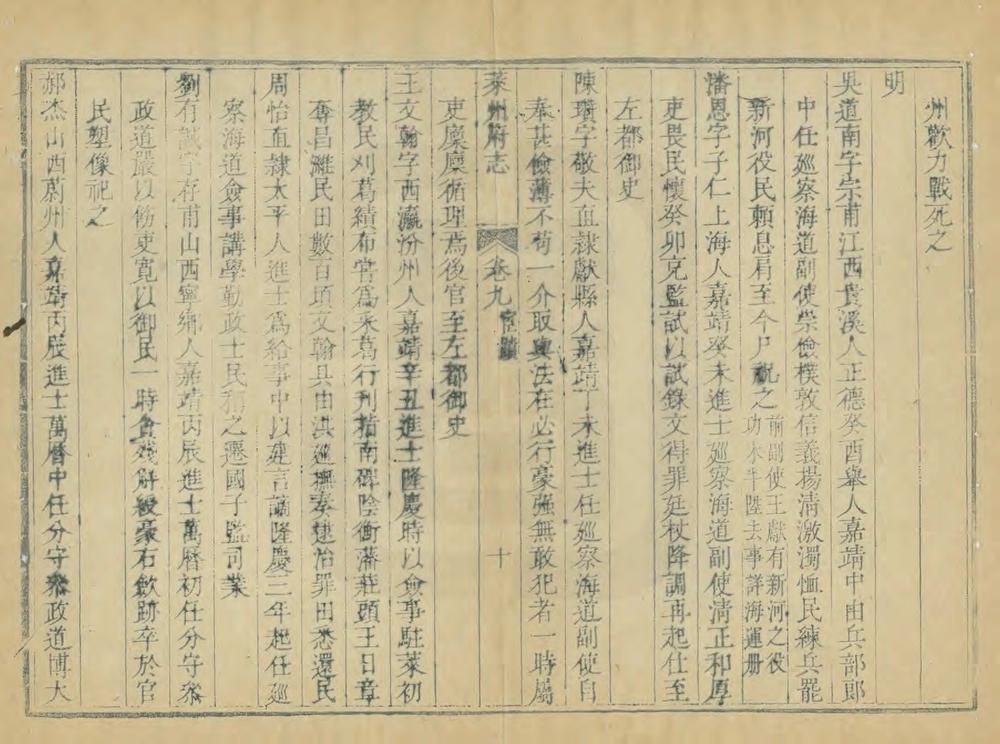 州歡力戰死之
明
吳道南字宗甫江西貴溪人正德癸酉舉人嘉靖中由兵部郎
中任廵察海道副使崇儉樸敦信義揚清激濁恤民練兵罷
新河役民賴息肩至今尸祝之前副使王獻有新河之役
功未半陞去事詳海運册
潘恩字子仁上海人嘉靖癸未進士廵察海道副使清正和厚
吏畏民懷癸卯克監試以試錄文得罪廷杖降調再起仕至
左都御史
陳瓚字敬夫直隸獻縣人嘉靖丁未進士任廵察海道副使自
奉甚儉薄不苟一介取與法在必行豪强無敢犯者一時屬
萊州府志
卷九
宦蹟
十
吏廩廩循理焉後官至左都御史
王文翰字西瀛汾州人嘉靖辛丑進士隆慶時以僉事駐萊初
教民刈葛績布嘗爲采葛行刋指南碑陰衡藩莊頭王日章
奪昌濰民田數百頃文翰具由洪廵撫奏逮治罪田悉還民
周怡直隸太平人進士爲給事中以建言謫隆慶三年起任廵
察海道僉事講學勤政士民稱之遷國子監司業
劉有誠字存甫山西寧鄉人嘉靖丙辰進士萬曆初任分守叅
政道嚴以飭吏寬以御民一時貪殘解綬豪右歛跡卒於官
民塑像祀之
郝杰山西蔚州人嘉靖丙辰進士萬曆中任分守叅政道博大